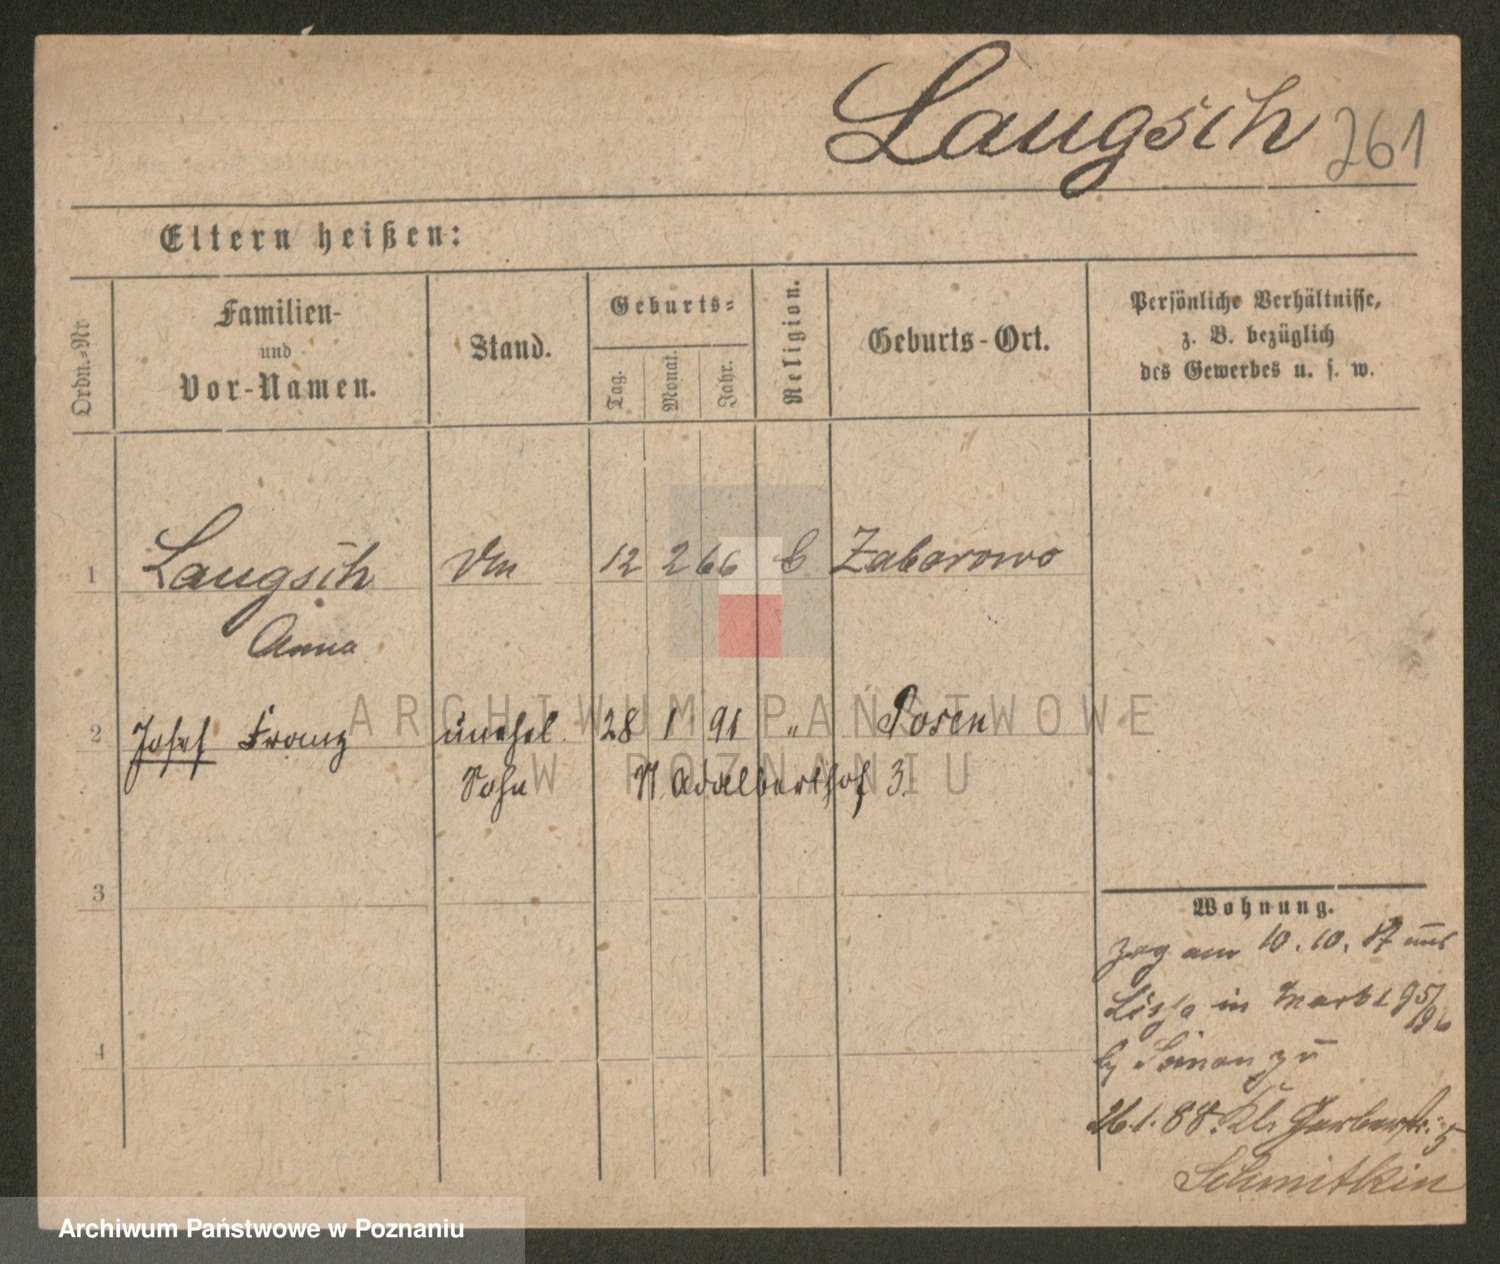 Laugsch 261
Eltern heißen:
Ordn.-Nr
Familien-
und
Vor-Namen.
Stand.
Geburts-
Tag.
Monat.
Jahr.
Religion.
Geburts-Ort.
Persönliche Verhältnisse,
z. B. bezüglich
des Gewerbes u. s. w.
1 Laugsch 12 2 66 Zaborowo
Anna
ARCHIWUM PAŃSTWOWE
2 Josef Franz unehel. 28 1 91 " Posen
W POZNANIU
Sohn Adalberthof 3.
3
Wohnung.
zog am 10. 10. 87 aus
Lissa in Markt 95/96
by Simon zu
4
26.1.88. Kl. Gerberstr. 5
Schmitkin
Archiwum Państwowe w Poznaniu